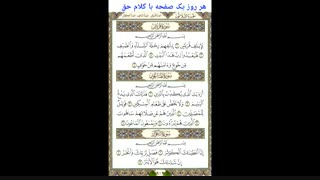 هر روز یک صفحه با کلام حق
سُورَةُ قُرَيْشٍ
بِسْمِ اللَّهِ الرَّحْمَٰنِ الرَّحِيمِ
لِإِيلَافِ قُرَيْشٍ ۝ إِيلَافِهِمْ رِحْلَةَ الشِّتَاءِ وَالصَّيْفِ
۝ فَلْيَعْبُدُوا رَبَّ هَٰذَا الْبَيْتِ ۝ الَّذِي أَطْعَمَهُم
مِّن جُوعٍ وَآمَنَهُم مِّنْ خَوْفٍ ۝
سُورَةُ الْمَاعُونِ
بِسْمِ اللَّهِ الرَّحْمَٰنِ الرَّحِيمِ
أَرَأَيْتَ الَّذِي يُكَذِّبُ بِالدِّينِ ۝ فَذَٰلِكَ الَّذِي يَدُعُّ
الْيَتِيمَ ۝ وَلَا يَحُضُّ عَلَىٰ طَعَامِ الْمِسْكِينِ ۝ فَوَيْلٌ
لِّلْمُصَلِّينَ ۝ الَّذِينَ هُمْ عَن صَلَاتِهِمْ سَاهُونَ
۝ الَّذِينَ هُمْ يُرَاءُونَ ۝ وَيَمْنَعُونَ الْمَاعُونَ ۝
سُورَةُ الْكَوْثَرِ
بِسْمِ اللَّهِ الرَّحْمَٰنِ الرَّحِيمِ
إِنَّا أَعْطَيْنَاكَ الْكَوْثَرَ ۝ فَصَلِّ لِرَبِّكَ وَانْحَرْ ۝
إِنَّ شَانِئَكَ هُوَ الْأَبْتَرُ ۝